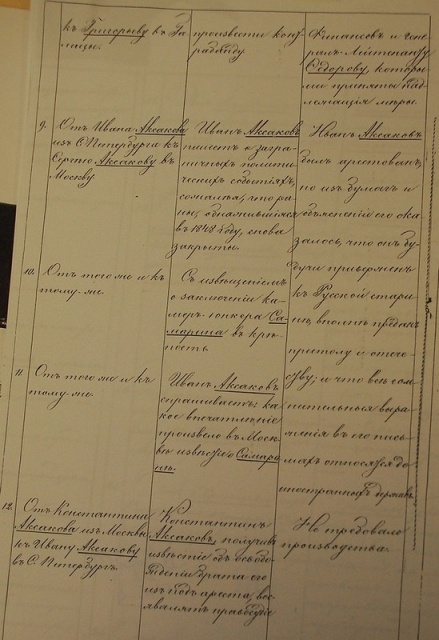 къ Григорьеву въ Га-
лацы.
произвести контр-
Финансовъ и Гене-
ралъ-Лейтенанту
Ѳедорову, которы-
ми приняты над-
лежащія мѣры.
9.
Отъ Ивана Аксакова
изъ С.Петербурга къ
Сергѣю Аксакову въ
Москву
Иванъ Аксаковъ
пишетъ о загра-
ничныхъ полити-
ческихъ событіяхъ,
что ра-
въ 1848 году, снова
закрыты.
Иванъ Аксаковъ
былъ арестованъ,
но изъ бумагъ и
объясненій его ока-
залось, что онъ бу-
дучи приверженъ
къ Русской стари-
нѣ, вполнѣ преданъ
престолу и отече-
ству; и что всѣ сом-
нительныя выра-
женія въ его пись-
махъ относятся до
иностранныхъ державъ.
10.
Отъ того же и къ
тому-же.
Съ извѣщеніемъ
о заключеніи ка-
меръ-юнкера Са-
марина въ крѣ-
пость.
11.
Отъ того же и къ
тому же.
Иванъ Аксаковъ
спрашиваетъ: ка-
кое впечатлѣніе
произвело въ Моск-
вѣ извѣстіе о Самари-
нѣ.
12.
Отъ Константина
Аксакова изъ Москвы
къ Ивану Аксакову
въ С.Петербургъ.
Константинъ
Аксаковъ, получивъ
извѣстіе объ освобо-
жденіи брата его
изъ подъ ареста,
Не требовало
производства.